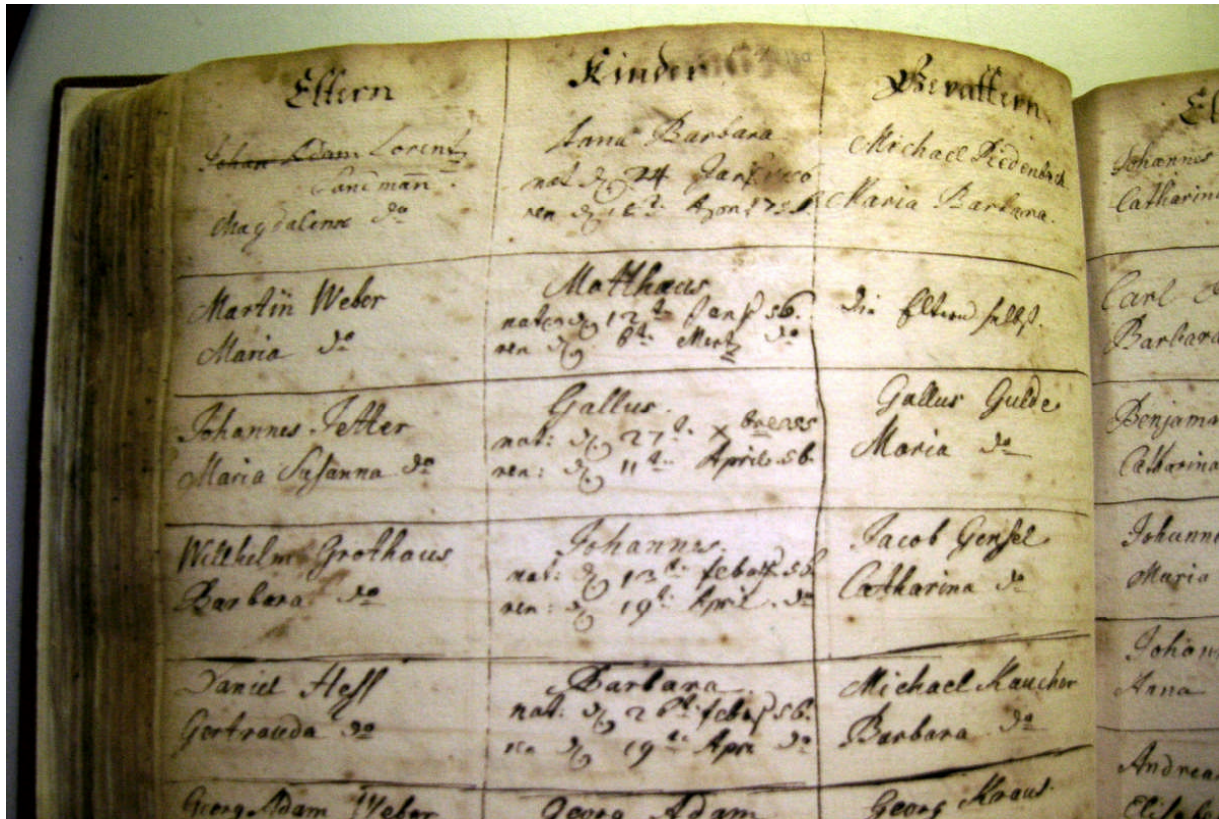 Eltern
Kinder
Gevattern
Johan Adam Lorentz
Sandmañ.
Magdalena do
Anna Barbara
nat d. 24
ren d. Apr.
Michael
Maria Barbara.
Martin Weber
Maria do
Matthæus
nat d. 12t. Jan. 56.
ren d. 6t. Mertz do
die Eltern selbst.
Johannes Jetter
Maria Susanna do
Gallus.
nat: d. 27t.
ren: d. 11t. April. 56.
Gallus Gulde
Maria do
Willhelm Grothaus
Barbara do
Johannes.
nat: d. 13t. febr. 56.
ren: d. 19t. April. do
Jacob Gensel
Catharina do
Daniel Hess
Gertrauda do
Barbara
nat: d. 26t. febr. 56.
ren d. 19t. Apr. do
Michael Kaucher
Barbara do
Georg Adam Weber
Georg Adam
Georg Kraus.
El
Johannes
Catharina
Carl
Barbara
Benjam
Catharina
Johann
Maria
Johan
Anna
Andrea
Elisabe